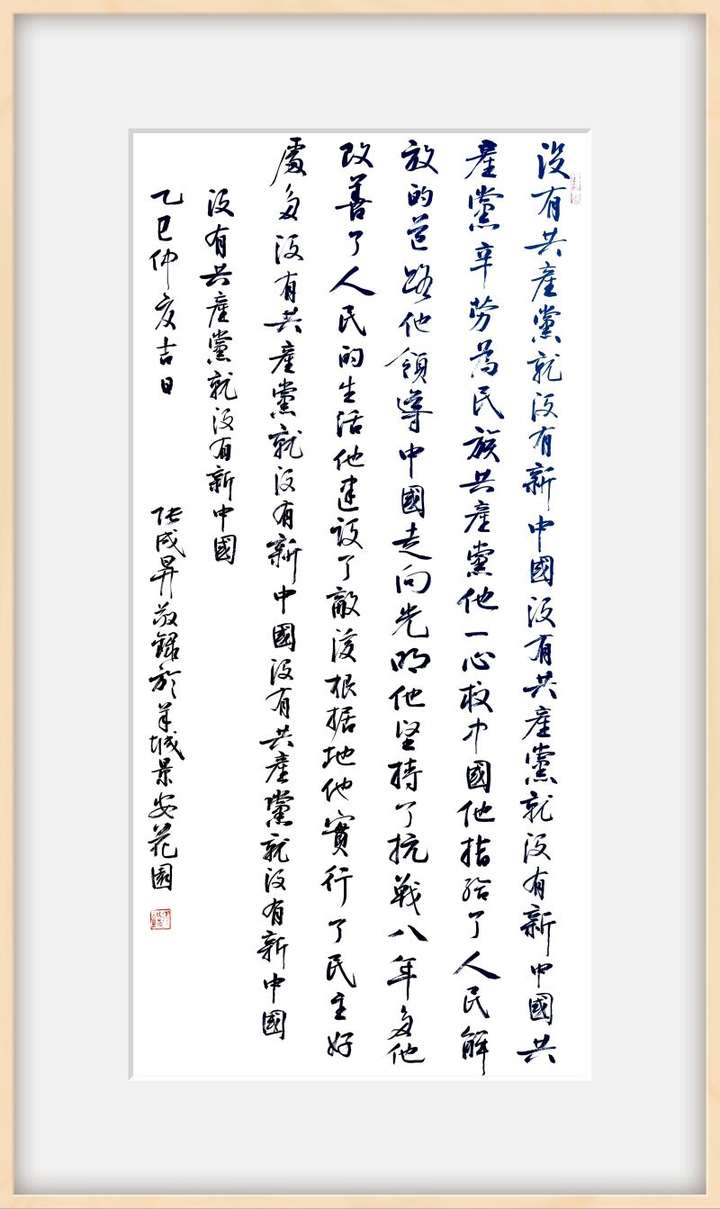 没有共產黨就没有新中國没有共產黨就没有新中國共
產黨辛勞為民族共產黨他一心救中國他指给了人民解
放的道路他領導中國走向光明他坚持了抗戰八年多他
改善了人民的生活他建設了敵後根据地他實行了民主好
處多没有共產黨就没有新中國没有共產黨就没有新中國
没有共產黨就没有新中國
乙巳仲夏吉日
张成昇敬錄於羊城景安花園